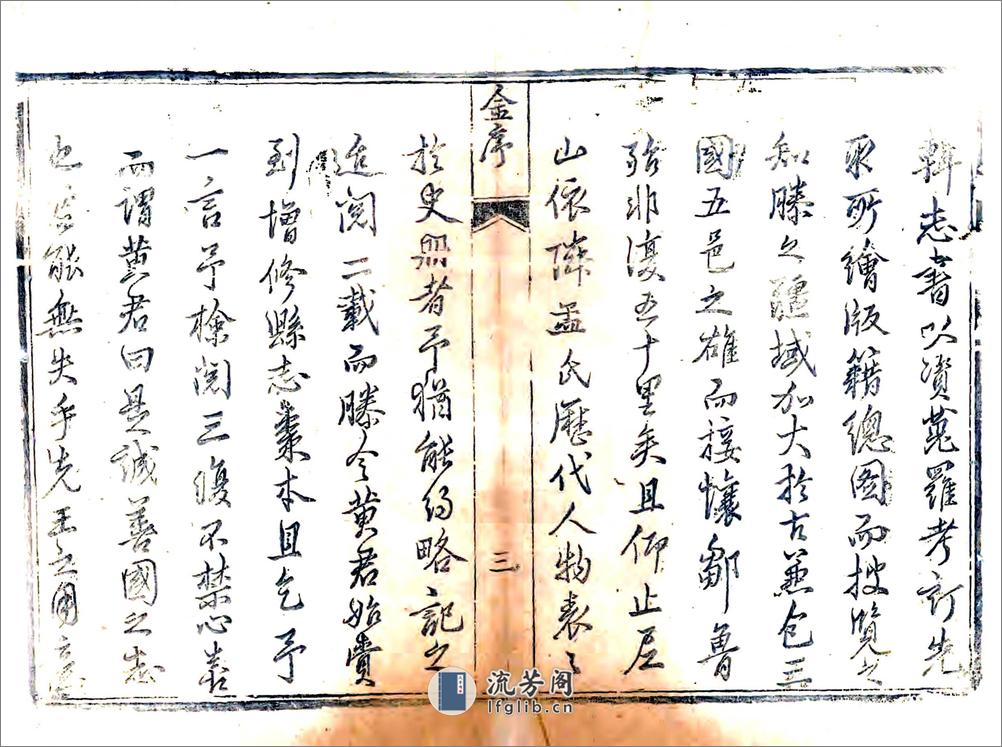 輯志書以資蒐羅考訂先
取所繪版籍總圖而披覽之
知滕之疆域加大於古兼包三
國五邑之雄而接懷鄒魯
殆非復五十里矣且仰止尼
山依際孟氏歷代人物表之
金序
三
於史册者予猶能約略記之
迄閱二載而滕令黄君始賫
到增修縣志槀本且乞予
一言予檢閱三復不禁心喜
而謂黄君曰是誠善國之志
也 能無失乎先王之
流芳阁
lfglib.cn